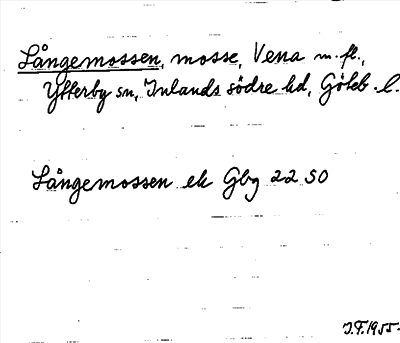 Långemossen, mosse, Vena m.fl.,
Ytterby sn, Inlands södre hd, Göteb. l.
Långemossen ek Gbg 22 SO
J.F. 1955